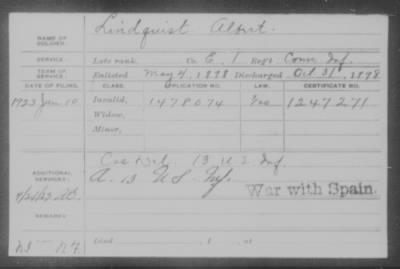 NAME OF SOLDIER: Lindquist Albert.
SERVICE: Late rank, Co. E, 1 Reg't Conn Inf.
TERM OF SERVICE: Enlisted May 4, 1898 Discharged Oct 31, 1898
DATE OF FILING. CLASS. APPLICATION NO. LAW. CERTIFICATE NO.
1923 Jan 10 Invalid, 1478074 1247271
Widow,
Minor,
ADDITIONAL SERVICES: 13 U S Inf
War with Spain.
REMARKS:
Died , 1 , at